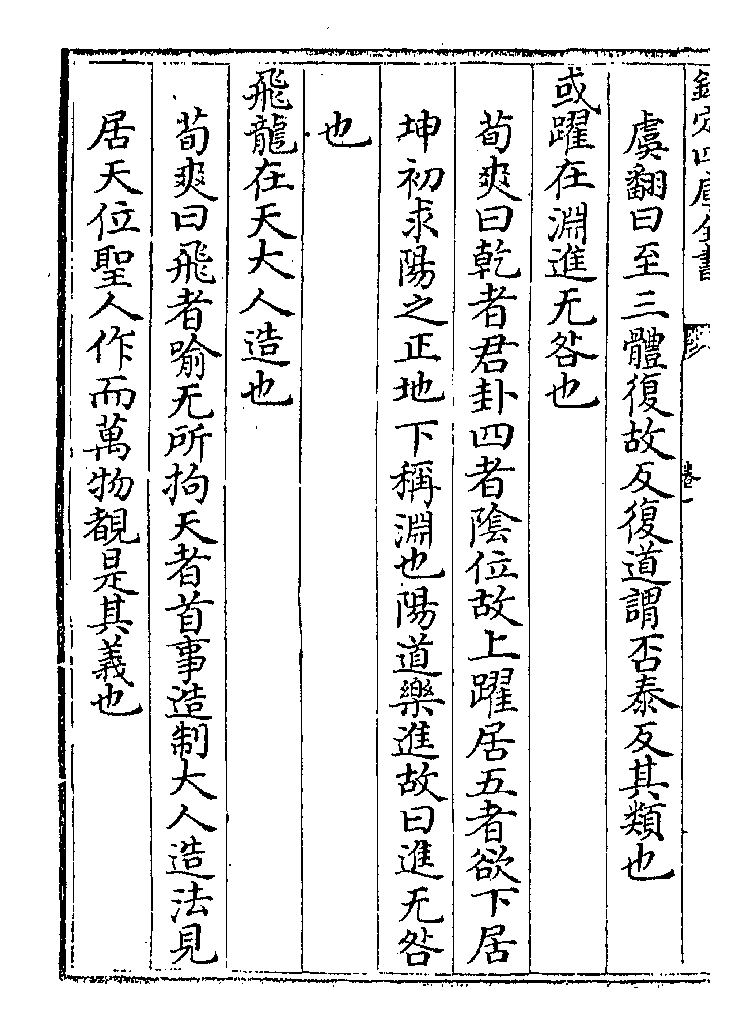 欽定四庫全書
卷一
虞翻曰至三體復故反復道謂否泰反其類也
或躍在淵進无咎也
荀爽曰乾者君卦四者陰位故上躍居五者欲下居
坤初求陽之正地下稱淵也陽道樂進故曰進无咎
也
飛龍在天大人造也
荀爽曰飛者喻无所拘天者首事造制大人造法見
居天位聖人作而萬物覩是其義也